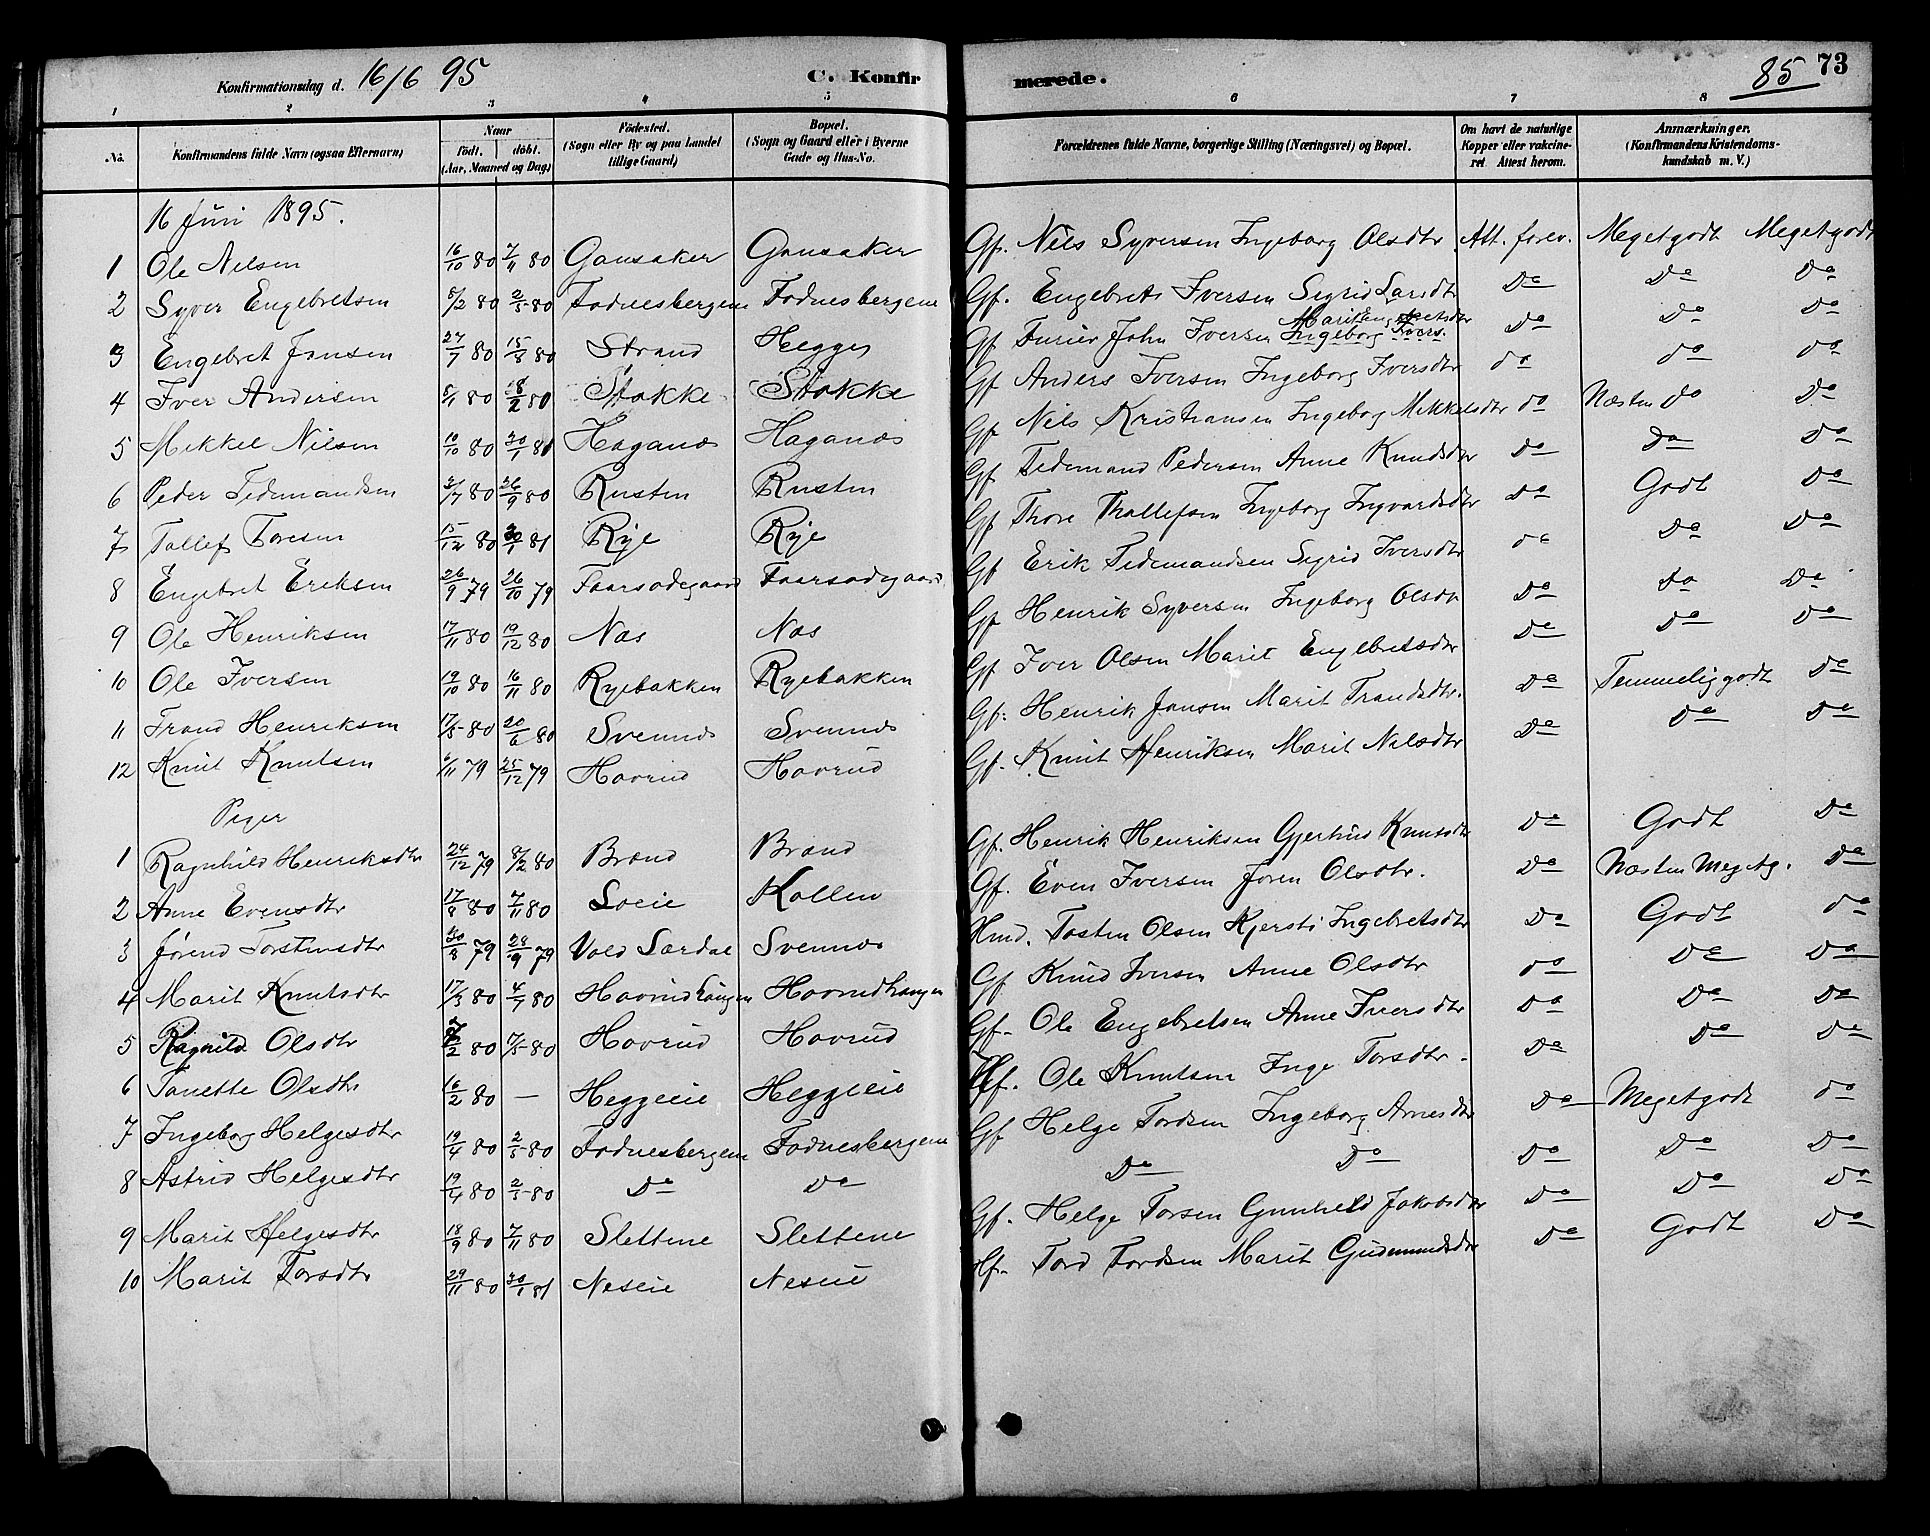 Konfirmationsdag d. 16/6 95 C. Konfirmerede. 85 73
1 2 3 4 5 6 7 8
No. Konfirmandens fulde Navn (ogsaa Efternavn) Naar født. døbt. (Aar, Maaned og Dag) Fødested. (Sogn eller By og paa Landet tillige Gaard) Bopæl. (Sogn og Gaard eller i Byerne Gade og Hus-No. Forældrenes fulde Navne, borgerlige Stilling (Næringsvei) og Bopæl. Om havt de naturlige Kopper eller vakcineret Attest herom. Anmærkninger. (Konfirmandens Kristendomskundskab m. V.)
16 Juni 1895.
1 Ole Nilsen 16/10 80 7/11 80 Gausaker Gausaker Gf. Nils Syversen Ingeborg Olsdtr Att. forev. Megetgodt Megetgodt
2 Syver Engebretsen 5/2 80 2/5 80 Fodnesbergene Fodnesbergene Gf. Engebret Iversen Sigrid Larsdtr Do Do Do
3 Engebret Jansen 27/7 80 15/8 80 Strand Hegges Gf Furier John Iversen Marit Engebretsdtr Ingeborg Ivers. Do Do Do
4 Iver Andersen 5/1 80 18/2 80 Stokke Stokke Gf Anders Iversen Ingeborg Iversdtr do do do
5 Mikkel Nilsen 10/10 80 30/1 81 Haganæs Haganæs Gf Nils Kristiansen Ingeborg Mikkelsdtr do Næsten do Do
6 Peder Tidemandsen 21/7 80 26/9 80 Rusten Rusten Gf Tidemand Pedersen Anne Knudsdtr Do Do Do
7 Tollef Toresen 15/12 80 30/1 81 Rye Rye Gf Thore Thollefsen Ingeborg Ingvardsdtr Do Godt Do
8 Engebret Eriksen 26/9 79 26/10 79 Faarsødegaard Faarsødegaard Gf Erik Tidemandsen Sigrid Iversdtr do Do Do
9 Ole Henriksen 17/11 80 19/12 80 Næs Næs Gf Henrik Syversen Ingeborg Olsdtr Do do Do
10 Ole Iversen 19/10 80 16/11 80 Ryebakken Ryebakken Gf Iver Olsen Marit Engebretsdtr Do Do Do
11 Trond Henriksen 17/5 80 20/6 80 Svennæs Svennæs Gf. Henrik Jansen Marit Trondsdtr. Do Temmeliggodt Do
12 Knut Knutsen 6/11 79 25/12 79 Hovrud Hovrud Gf. Knut Henriksen Marit Nilsdtr Do Do Do
Piger
1 Ragnhild Henriksdtr 24/12 79 8/2 80 Brand Brand Gf. Henrik Henriksen Gjertrus Knutsdtr Do Godt Do
2 Anne Evensdtr 17/8 80 7/11 80 Loeie Kollen Gf. Even Iversen Jøren Olsdtr. Do Næsten Megetg. Do
3 Jørend Torstensdtr 30/8 79 28/9 79 Vold Lærdal Svennæs Hmd. Tosten Olsen Kjersti Ingebretsdtr Do Godt do
4 Marit Knutsdtr 17/3 80 4/7 80 Hovrudhaugen Hovrudhaugen Gf Knud Iversen Anne Olsdtr do Do Do
5 Ragnild Olsdtr /2 80 7/5 80 Hovrud Hovrud Gf. Ole Engebretsen Anne Iversdtr Do Do Do
6 Tonette Olsdtr 16/2 80 — Heggeeie Heggeeie Gf. Ole Knutsen Inge Torsdtr. Do Do Do
7 Ingeborg Helgesdtr 19/4 80 2/5 80 Fodnesbergene Fodnesbergene Gf Helge Tordsen Ingeborg Arnesdtr Do Megetgodt do
8 Astrid Helgesdtr 19/4 80 2/5 80 Do Do Do Do Do Do Do
9 Marit Helgesdtr 18/9 80 7/11 80 Slettene Slettene Gf. Helge Torsen Gunhild Jakobsdtr Do Do Do
10 Marit Torsdtr 29/11 80 30/1 81 Neseie Neseie Gf. Tord Tordsen Marit Gudmundsdtr Do Godt Do